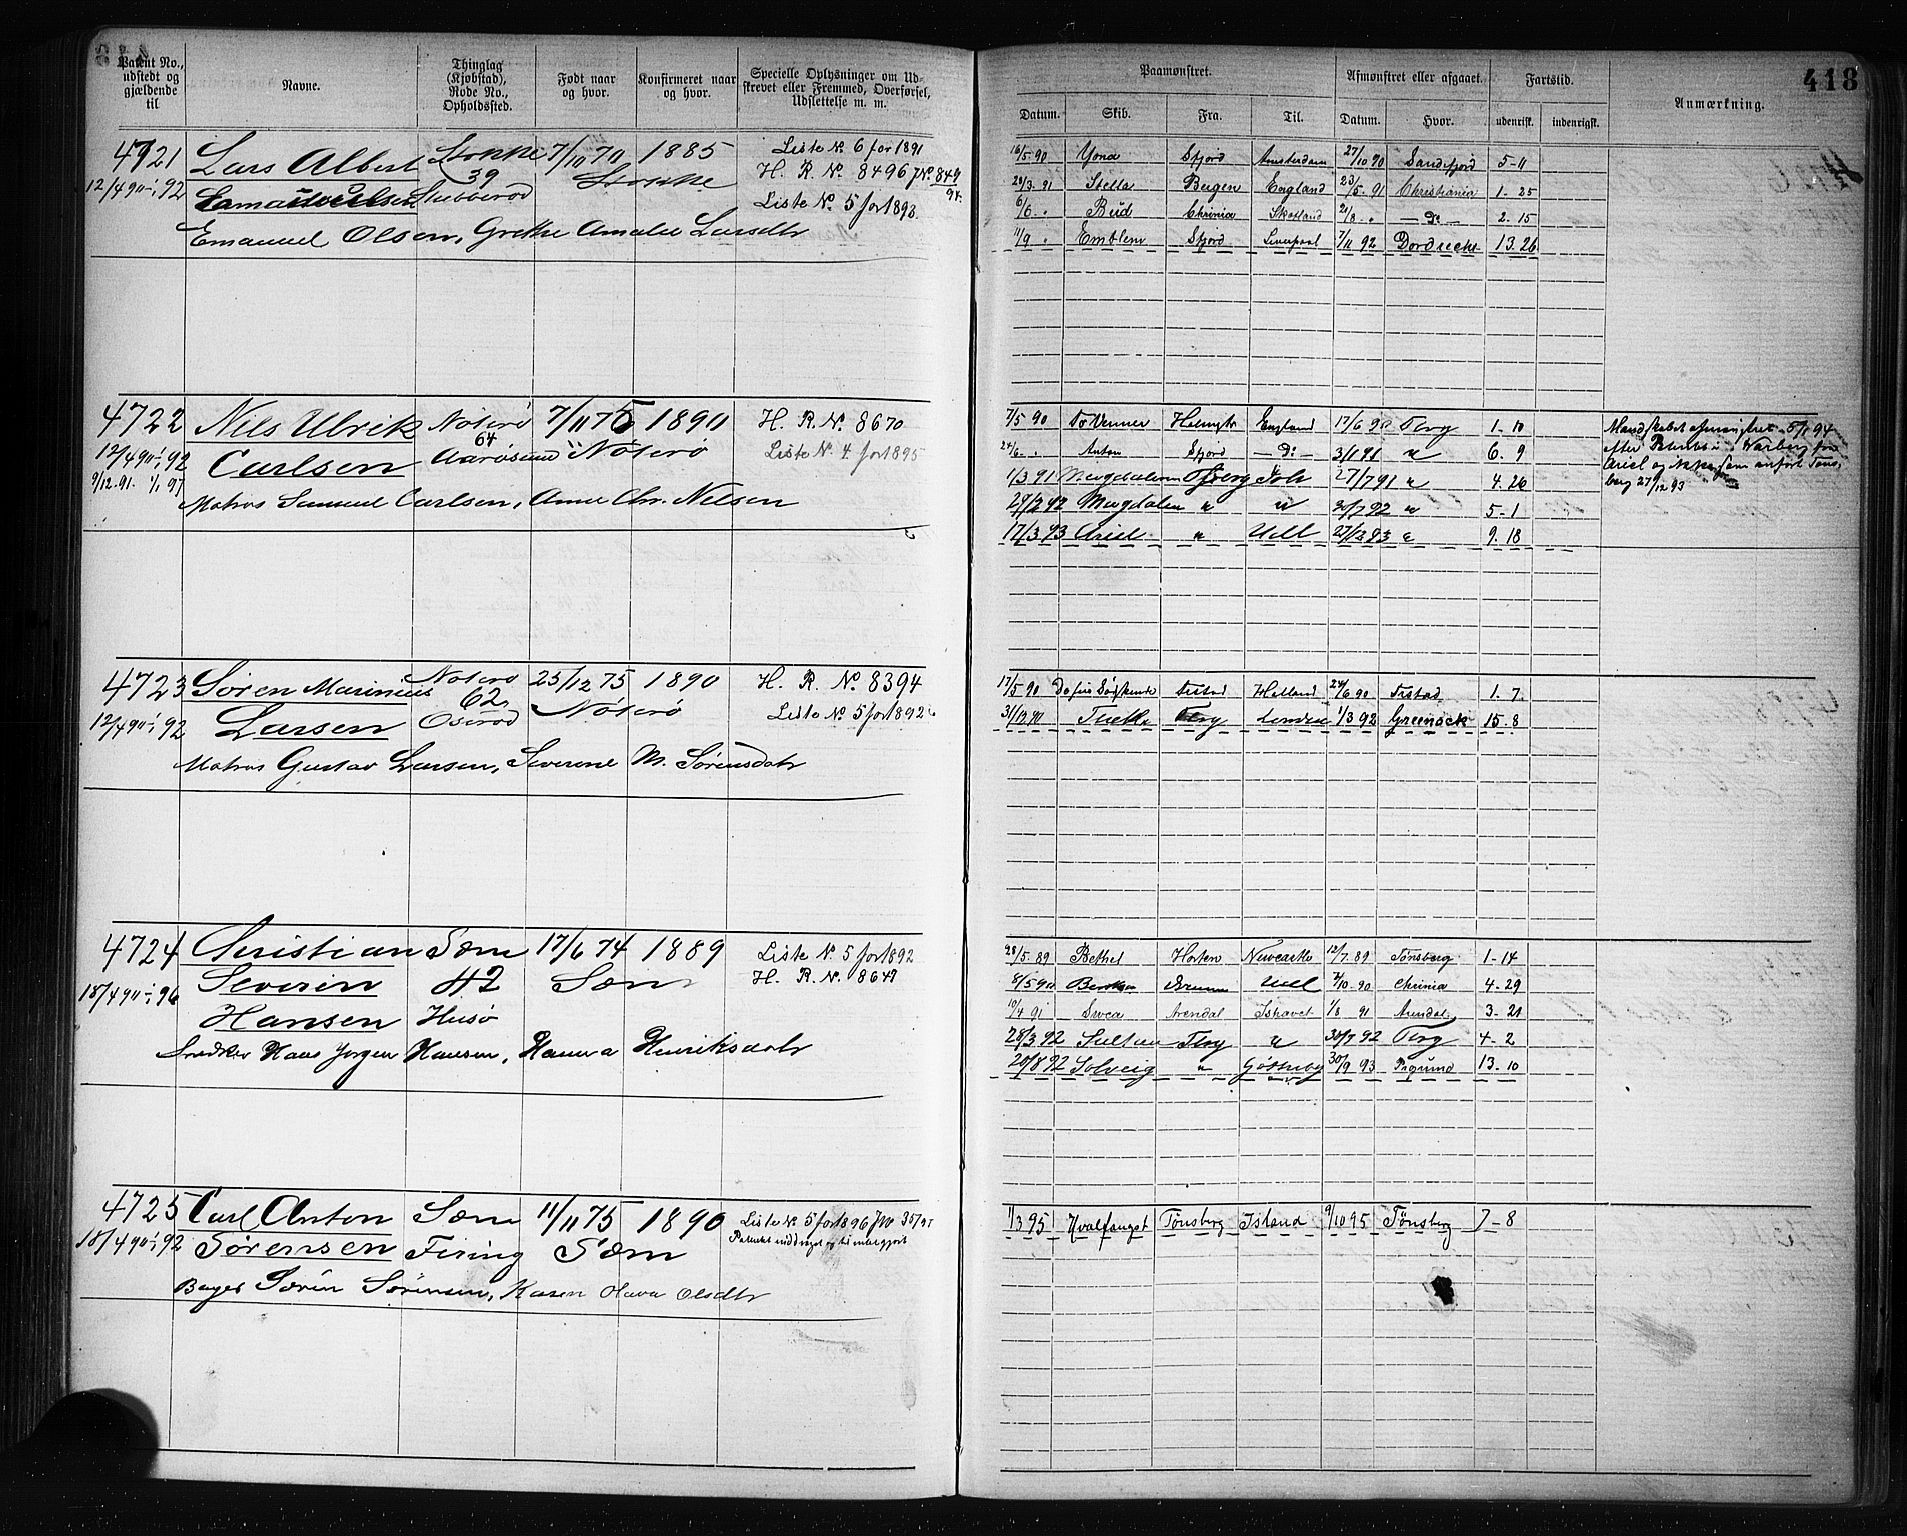 418
Patent No., udstedt og gjældende til
Navne.
Thinglag (Kjøbstad), Rode No., Opholdssted.
Født naar og hvor.
Konfirmeret naar og hvor.
Specielle Oplysninger om Udskrevet eller Fremmed, Overførsel, Udslettelse m. m.
Paamønstret.
Afmønstret eller afgaaet.
Fartstid.
Anmærkning.
Datum.
Skib.
Fra.
Til.
Datum.
Hvor.
udenrigsk.
indenrigsk.
4721 Lars Albert Stokke 7/10 70 1885 Liste No 6 for 1891
39 Stokke H. R. No 8496 JNo 849
12/4 90 - 1/1 92 Stubberød Liste No 5 for 1893 94.
Emanuel Olsen, Grethe Amalie Larsdtr
16/5 90 Yona Sfjord Amsterdam 27/10 90 Sandefjord 5-11
28/3 91 Stella Bergen England 23/5 91 Christiania 1-25
6/6 " Bud Chrinia Skotland 21/8 " Do 2.15
11/9 " Emblem Sfjord Liverpool 7/11 92 Dordrecht 13.26
4722 Nils Ulrik Nøterø 7/11 75 1890 H. R. No 8670
12/4 90 - 1/1 92 Carlsen 64 Aarøsund Nøterø Liste No 4 for 1895
9/12 91 1/1 97
Matros Samuel Carlsen, Anne Chr. Nilsen
7/5 90 To Venner Holmestr England 17/6 90 Tbrg 1-10
24/6 " Anton Sfjord Do 3/11 91 " 6.9
1/3 91 Magdalena Tbrg Ish 27/7 91 " 4.26
29/2 92 Magdalen " " 92 " 5-1
17/3 93 Ariel " Udl 27/12 93 " 9.18
5/1 94
Ariel og
berg 27/12 93
4723 Søren Marinius Nøterø 25/12 75 1890 H. R. No 8394
12/4 90 - 1/1 92 Larsen 62 Oserød Nøterø Liste No 5 for 1892
Matros Gustav Larsen, Severine M. Sørensdatr
17/5 90 De fire Søskende Frstad Holland 24/6 90 Frstad 1.7
31/12 90 Thetis Tbrg London 1/3 92 Greenock 15.8
4724 Christian Sæm 17/6 74 1889 Liste No 5 for 1892
18/4 90 - 1/1 96 Severin 42 Sæm H. R. No 8649
Hansen Husø
Snedker Hans Jørgen Hansen, Hanna Henriksdatr
28/5 89 Bethel Horten Newcastle 12/7 89 Tønsberg 1-14
8/5 90 Udl 7/10 90 Chrinia 4.29
10/4 91 Svea Arendal Ishavet 1/8 91 Arendal 3-21
28/3 92 Sultan Tbrg " 30/7 92 Tbrg 4-2
20/8 92 Solveig " Gøtheborg 30/9 93 Prgrund 13-10
4725 Carl Anton Sæm 11/11 75 1890 Liste No 5 for 1896 JNo 35/97
18/4 90 - 1/1 92 Sørensen Firing Sæm Patentet inddraget og tilintetgjort
Bager Søren Sørensen, Karen Hava Olsdtr
1/3 95 Hvalfanget Tønsberg Island 9/10 95 Tønsberg 7-8